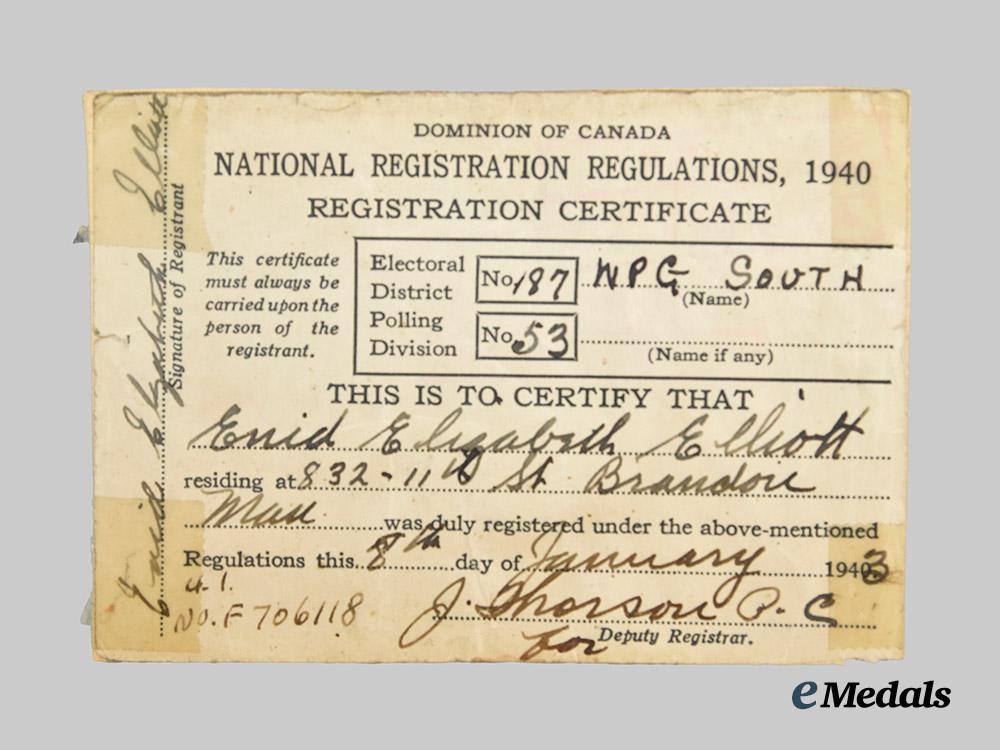 DOMINION OF CANADA
NATIONAL REGISTRATION REGULATIONS, 1940
REGISTRATION CERTIFICATE
This certificate
must always be
carried upon the
person of the
registrant.
Electoral
District
No. 187
WPG SOUTH
(Name)
Polling
Division
No. 53
(Name if any)
THIS IS TO CERTIFY THAT
Enid Elizabeth Elliott
residing at 832-11th St Brandon
Man was duly registered under the above-mentioned
Regulations this 8th day of January 1943
U.I.
NO. F706118
J. Thorson P.C
for Deputy Registrar.
Enid Elizabeth Elliott
Signature of Registrant
eMedals